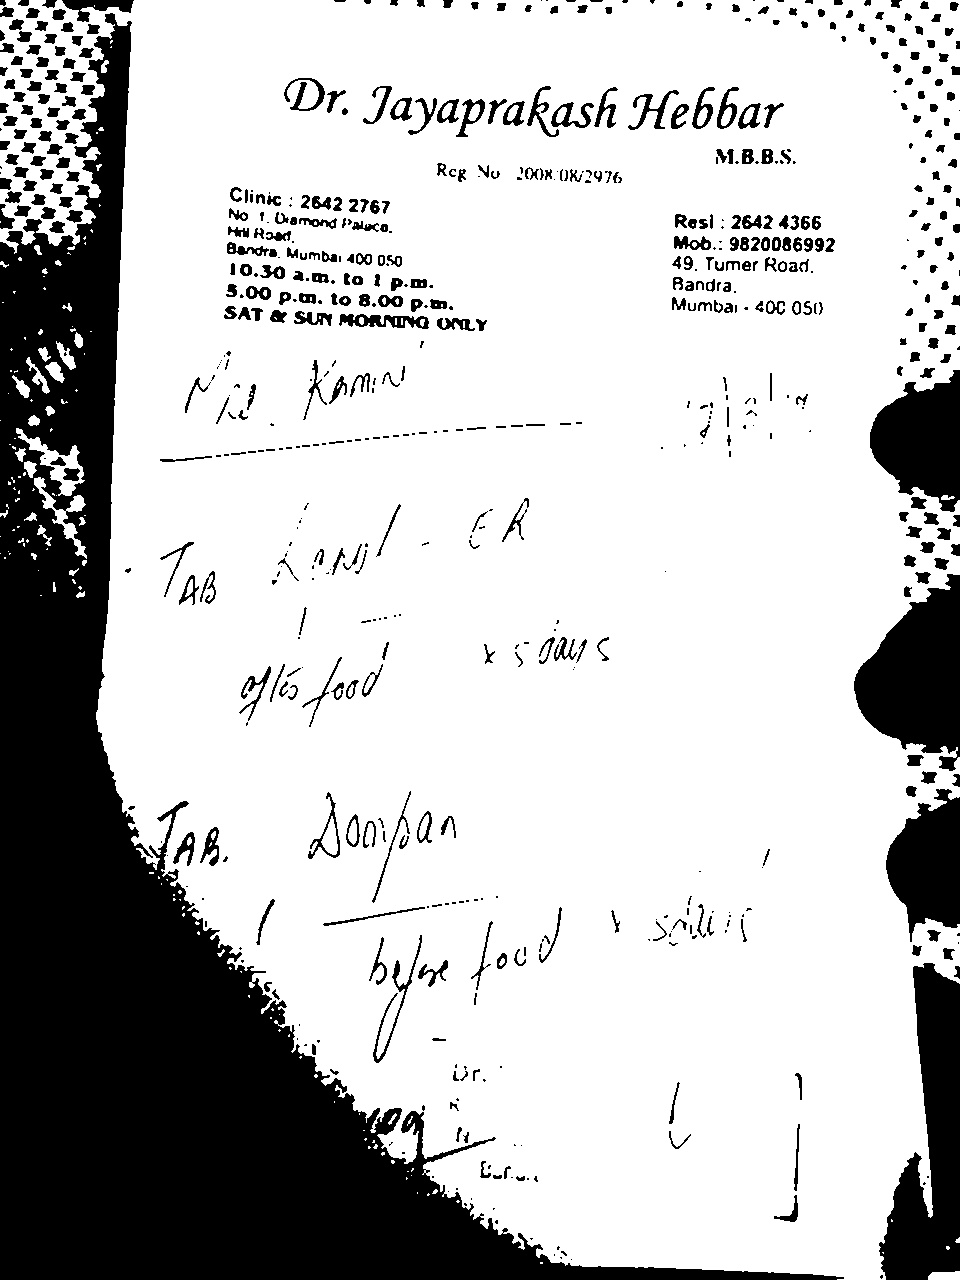 Dr. Jayaprakash Hebbar
M.B.B.S.
Reg No 2008/08/2976
Clinic : 2642 2767
No 1, Diamond Palace,
Hill Road,
Bandra, Mumbai 400 050
10.30 a.m. to 1 p.m.
5.00 p.m. to 8.00 p.m.
SAT & SUN MORNING ONLY
Resi : 2642 4366
Mob.: 9820086992
49, Turner Road,
Bandra,
Mumbai - 400 050
Mrs. Kamini
TAB - ER
1
after food x 5 days
TAB. Dompan
1
before food x 5 days
Dr.